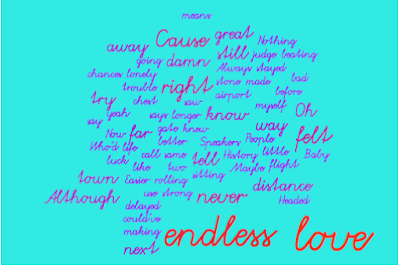 means
away Cause great Nothing
going damn still judge beating
chances lonely Always stayed
trouble right stone made bad
try chest saw airport before
say yeah says longer know myself Oh
Now far gate knew way felt
Who'd life better Speakers People
luck call same tell History little Baby
like two Maybe flight
town Easier rolling sitting
Although use strong never distance
delayed Headed
could've
making
next endless love